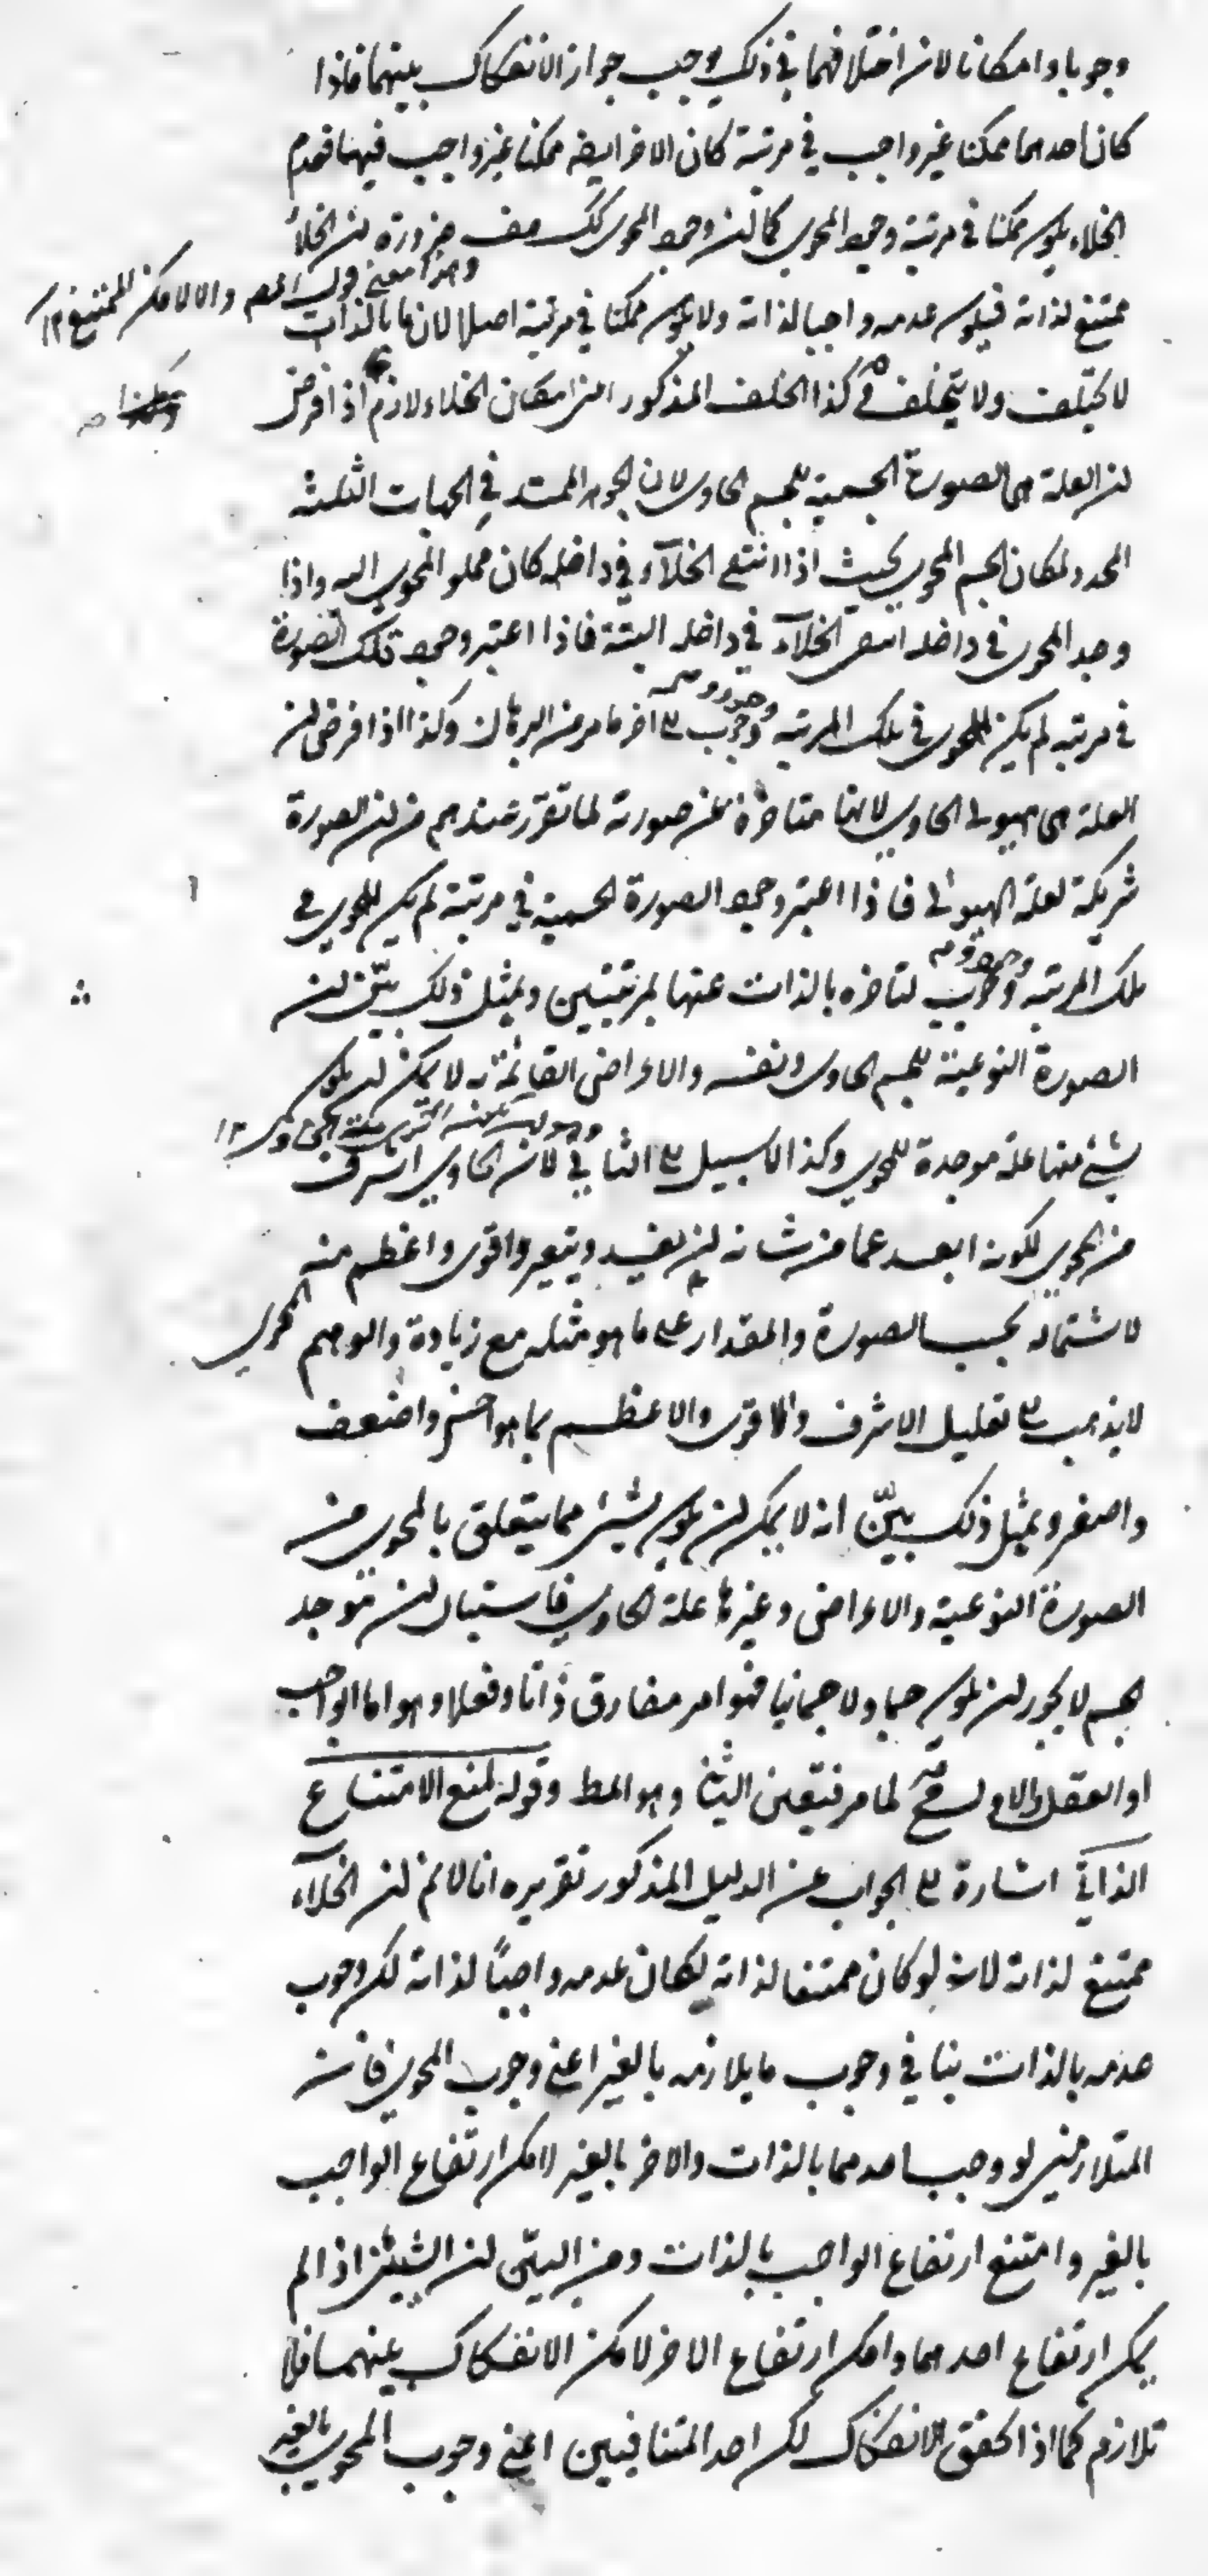 وجوبا وامكانا لان اختلافهما في ذلك يوجب جواز الانفكاك بينهما فاذا
كان احدهما ممكنا غير واجب في مرتبة كان الاخر ايضه ممكنا غير واجب فيها فعدم
الخلاء يكون ممكنا في مرتبة وجود المحوى كما ان وجود المحوى كك هف ضرورة ان الخلاء
وهذا معنى قول المص والا لامكن الممتنع ١٢
ممتنع لذاته فيكون عدمه واجبا لذاته ولا يكون ممكنا في مرتبة اصلا لان ما بالذات
لا يختلف ولا يتخلف وكذا الخلف المذكور اعنى امكان الخلاء لازم اذا فرض
ان العلة هى الصورة الجسمية للجسم الحاوى لان الجوهر الممتد في الجهات الثلثة
المحدد لمكان الجسم المحوى بحيث اذا انتفى الخلآء في داخله كان مملو المحوى اليه واذا
وجد المحوى في داخله انتفى الخلآء في داخله البتة فاذا اعتبر وجود تلك الصورة
في مرتبة لم يكن للمحوى في تلك المرتبة وجود ووجوب الى آخر ما مر من البرهان وكذا اذا فرض ان
العلة هى هيولى الحاوى لانها متاخرة عن صورته لما تقرر عندهم من ان الصورة
شريكة لعلة الهيولى فاذا اعتبر وجود الصورة الجسمية في مرتبة لم يكن للمحوى في
تلك المرتبة وجود ووجوب لتاخره بالذات عنها بمرتبتين وبمثل ذلك بيّن ان
الصورة النوعية للجسم الحاوى ونفسه والاعراض القائمة به لا يمكن ان يكون
شئ منها علة موجدة للمحوى وكذا لا سبيل الى الثاني لان الحاوى اشرف
من المحوى لكونه ابعد عما من شانه ان يفسد ويتغير واقوى واعظم منه
لاشتماله بحسب الصورة والمقدار على ما هو مثله مع زيادة والوهم
المحوى
لا يذهب الى تعليل الاشرف والاقوى والاعظم بما هو اخس واضعف
واصغر وبمثل ذلك بيّن انه لا يمكن ان يكون شئ مما يتعلق بالمحوى من
الصورة النوعية والاعراض وغيرها علة للحاوى فاستبان ان موجد
الجسم لا يجوز ان يكون جسما ولا جسمانيا فهو امر مفارق ذاتا وفعلا وهو اما الواجب
او العقل والاول لا يصح لما مر فتعين الثاني وهو المط وقوله لمنع الامتناع
الذاتي اشارة الى الجواب عن الدليل المذكور تقريره انا لا نم ان الخلآء
ممتنع لذاته لانه لو كان ممتنعا لذاته لكان عدمه واجبًا لذاته لكن وجوب
عدمه بالذات ينافي وجوب ما يلازمه بالغير اعنى وجوب المحوى فان
المتلازمين لو وجب احدهما بالذات والاخر بالغير لامكن ارتفاع الواجب
بالغير وامتنع ارتفاع الواجب بالذات ومن البيّن ان الشيئين اذا لم
يمكن ارتفاع احدهما وامكن ارتفاع الاخر لامكن الانفكاك بينهما فلا
تلازم كما اذا تحقق الانفكاك لكن احد المتنافيين اعنى وجوب المحوى بالغير